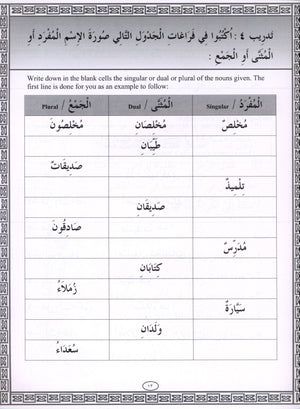 تدريب ٤ : اُكْتُبُوا فِي فَرَاغَاتِ الْجَدْوَلِ التَّالِي صُورَةَ الإِسْمِ الْمُفْرَدِ أَوِ
الْمُثَنَّى أَوِ الْجَمْعِ :
Write down in the blank cells the singular or dual or plural of the nouns given. The
first line is done for you as an example to follow:
Plural / اَلْجَمْعُ Dual / اَلْمُثَنَّى Singular / اَلْمُفْرَدُ
مُخْلِصٌ مُخْلِصَانِ مُخْلِصُونَ
طَبِيبَانِ
صَدِيقَاتٌ
تِلْمِيذٌ
صَدِيقَانِ
صَادِقُونَ
مُدَرِّسٌ
كِتَابَانِ
زُمَلَاءُ
سَيَّارَةٌ
وَلَدَانِ
سُعَدَاءُ
١٣